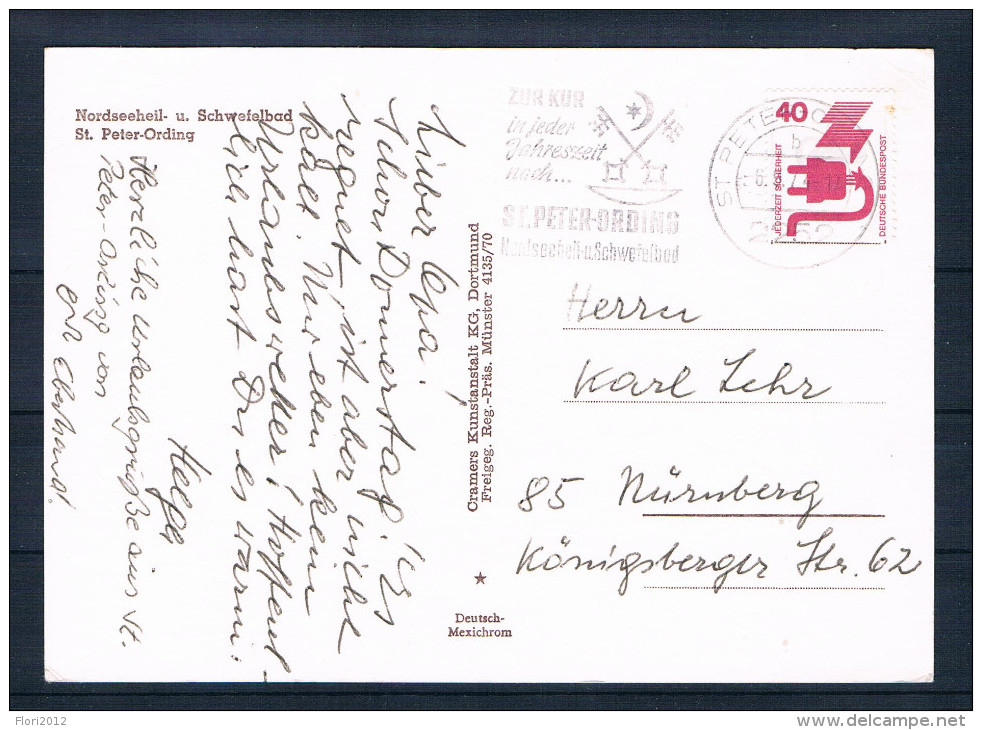 Nordseeheil- u. Schwefelbad
St. Peter-Ording
Lieber Opa!
Schon Donnerstag! Es
regnet, ist aber nicht
kalt. Nur eben kein
Urlaubswetter! Hoffent-
lich hast Du es warm!
Helga
Herzliche Urlaubsgrüße aus St.
Peter-Ording von
Eberhard!
Cramers Kunstanstalt KG, Dortmund
Freigeg. Reg.-Präs. Münster 4135/70
★
Deutsch-
Mexichrom
ZUR KUR
in jeder
Jahreszeit
nach...
ST. PETER-ORDING
Nordseeheil-u.Schwefelbad
ST PETER-ORD
b
2252
40
JEDERZEIT SICHERHEIT
DEUTSCHE BUNDESPOST
Herrn
Karl Lehr
85 Nürnberg
Königsberger Str. 62
Flori2012
www.delcampe.net